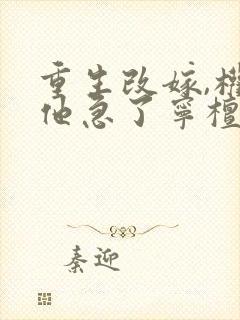 重生改嫁,权
他急了宁檀
秦迎